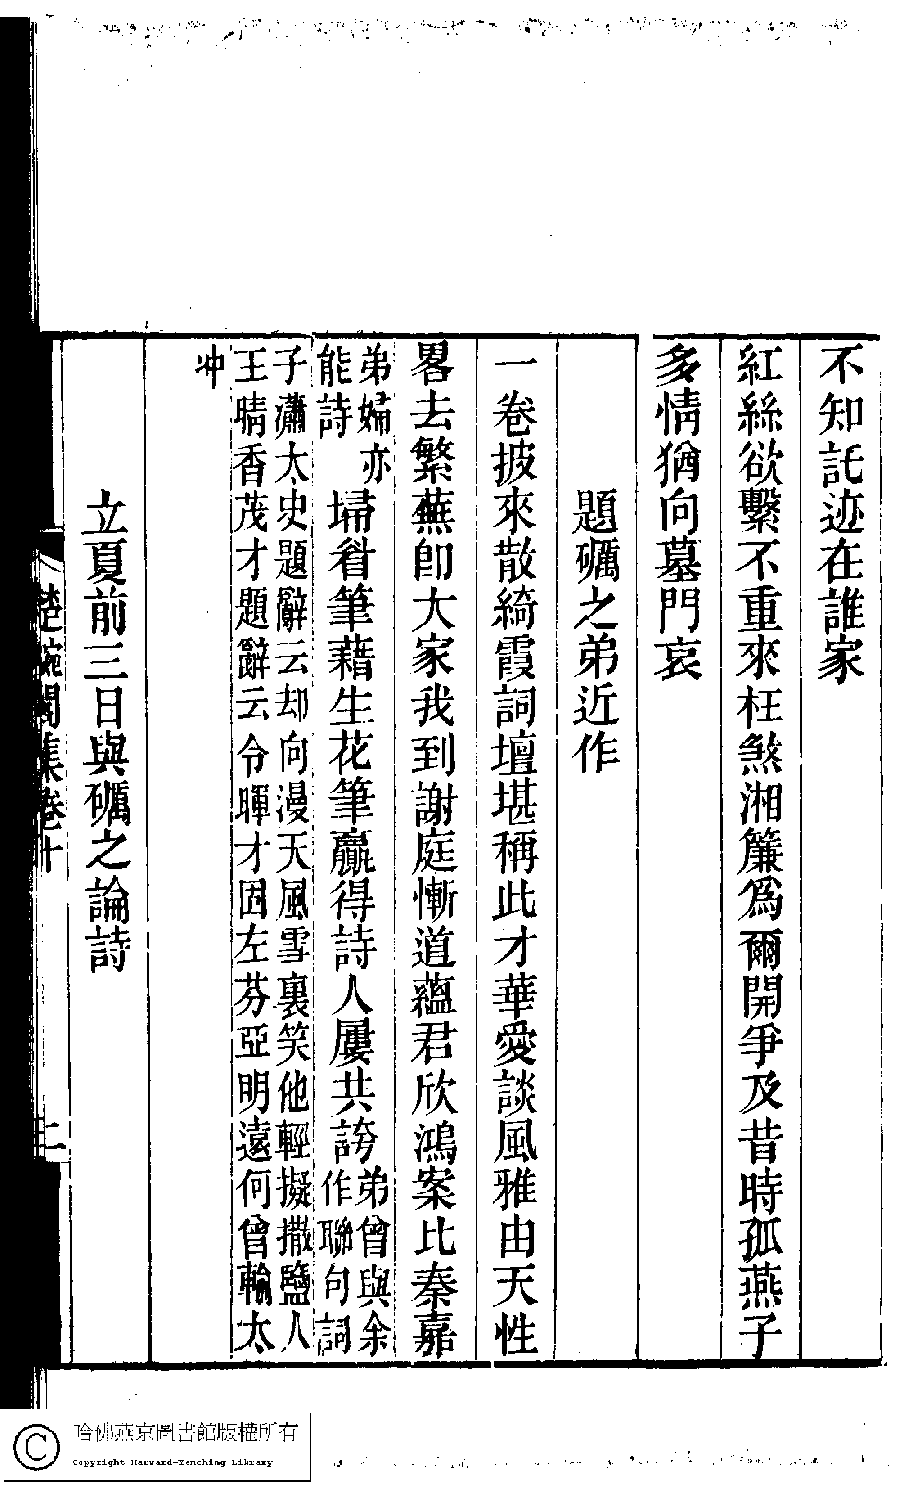 不知託迹在誰家
紅絲欲繫不重來枉煞湘簾爲爾開爭及昔時孤燕子
多情猶向墓門哀
題礪之弟近作
一卷披來散綺霞詞壇堪稱此才華愛談風雅由天性
畧去繁蕪卽大家我到謝庭慚道蘊君欣鴻案比秦嘉
弟婦亦
能詩
埽眉筆藉生花筆贏得詩人屢共誇
弟曾與余
作聯句詞
子瀟太史題辭云却向漫天風雪裏笑他輕擬撒鹽人
王晴香茂才題辭云令暉才因左芬亞明遠何曾輸太
冲
立夏前三日與礪之論詩
楚畹閣集卷十
哈佛燕京圖書館版權所有
Copyright Harvard-Yenching Library